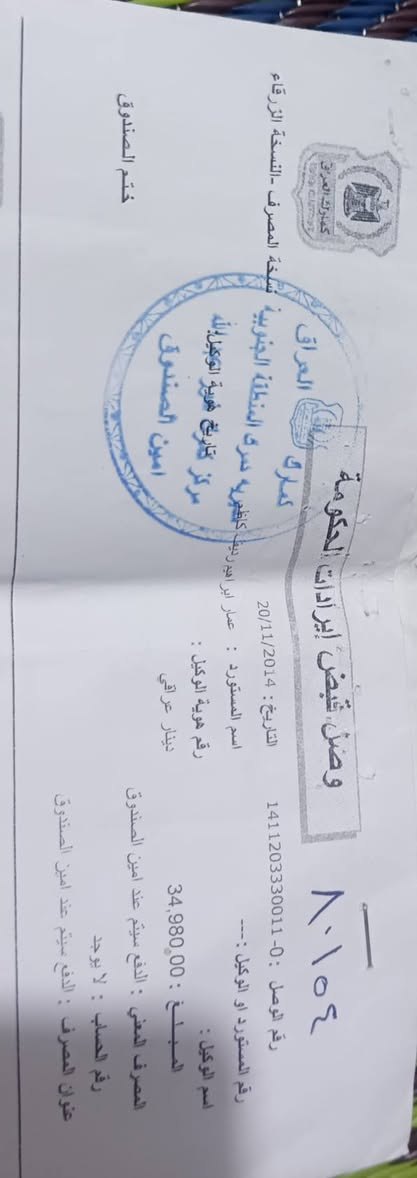 كمارك العراق
وصل قبض إيرادات الحكومة
٨٠١٥٤
نسخة المصرف -النسخة الزرقاء
رقم الوصل : 1411203330011-0
التاريخ : 20/11/2014
رقم المستورد او الوكيل : ---
اسم المستورد : عمار ابراهيم رديف كاظم
اسم الوكيل :
رقم هوية الوكيل :
تاريخ هوية الوكيل
المبلغ : 34,980.00
دينار عراقي
المصرف المعني : الدفع سيتم عند امين الصندوق
رقم الحساب : لا يوجد
عنوان المصرف : الدفع سيتم عند امين الصندوق
ختم الصندوق
كمارك العراق
كمرك المنطقة الجنوبية
مركز كمرك
امين الصندوق